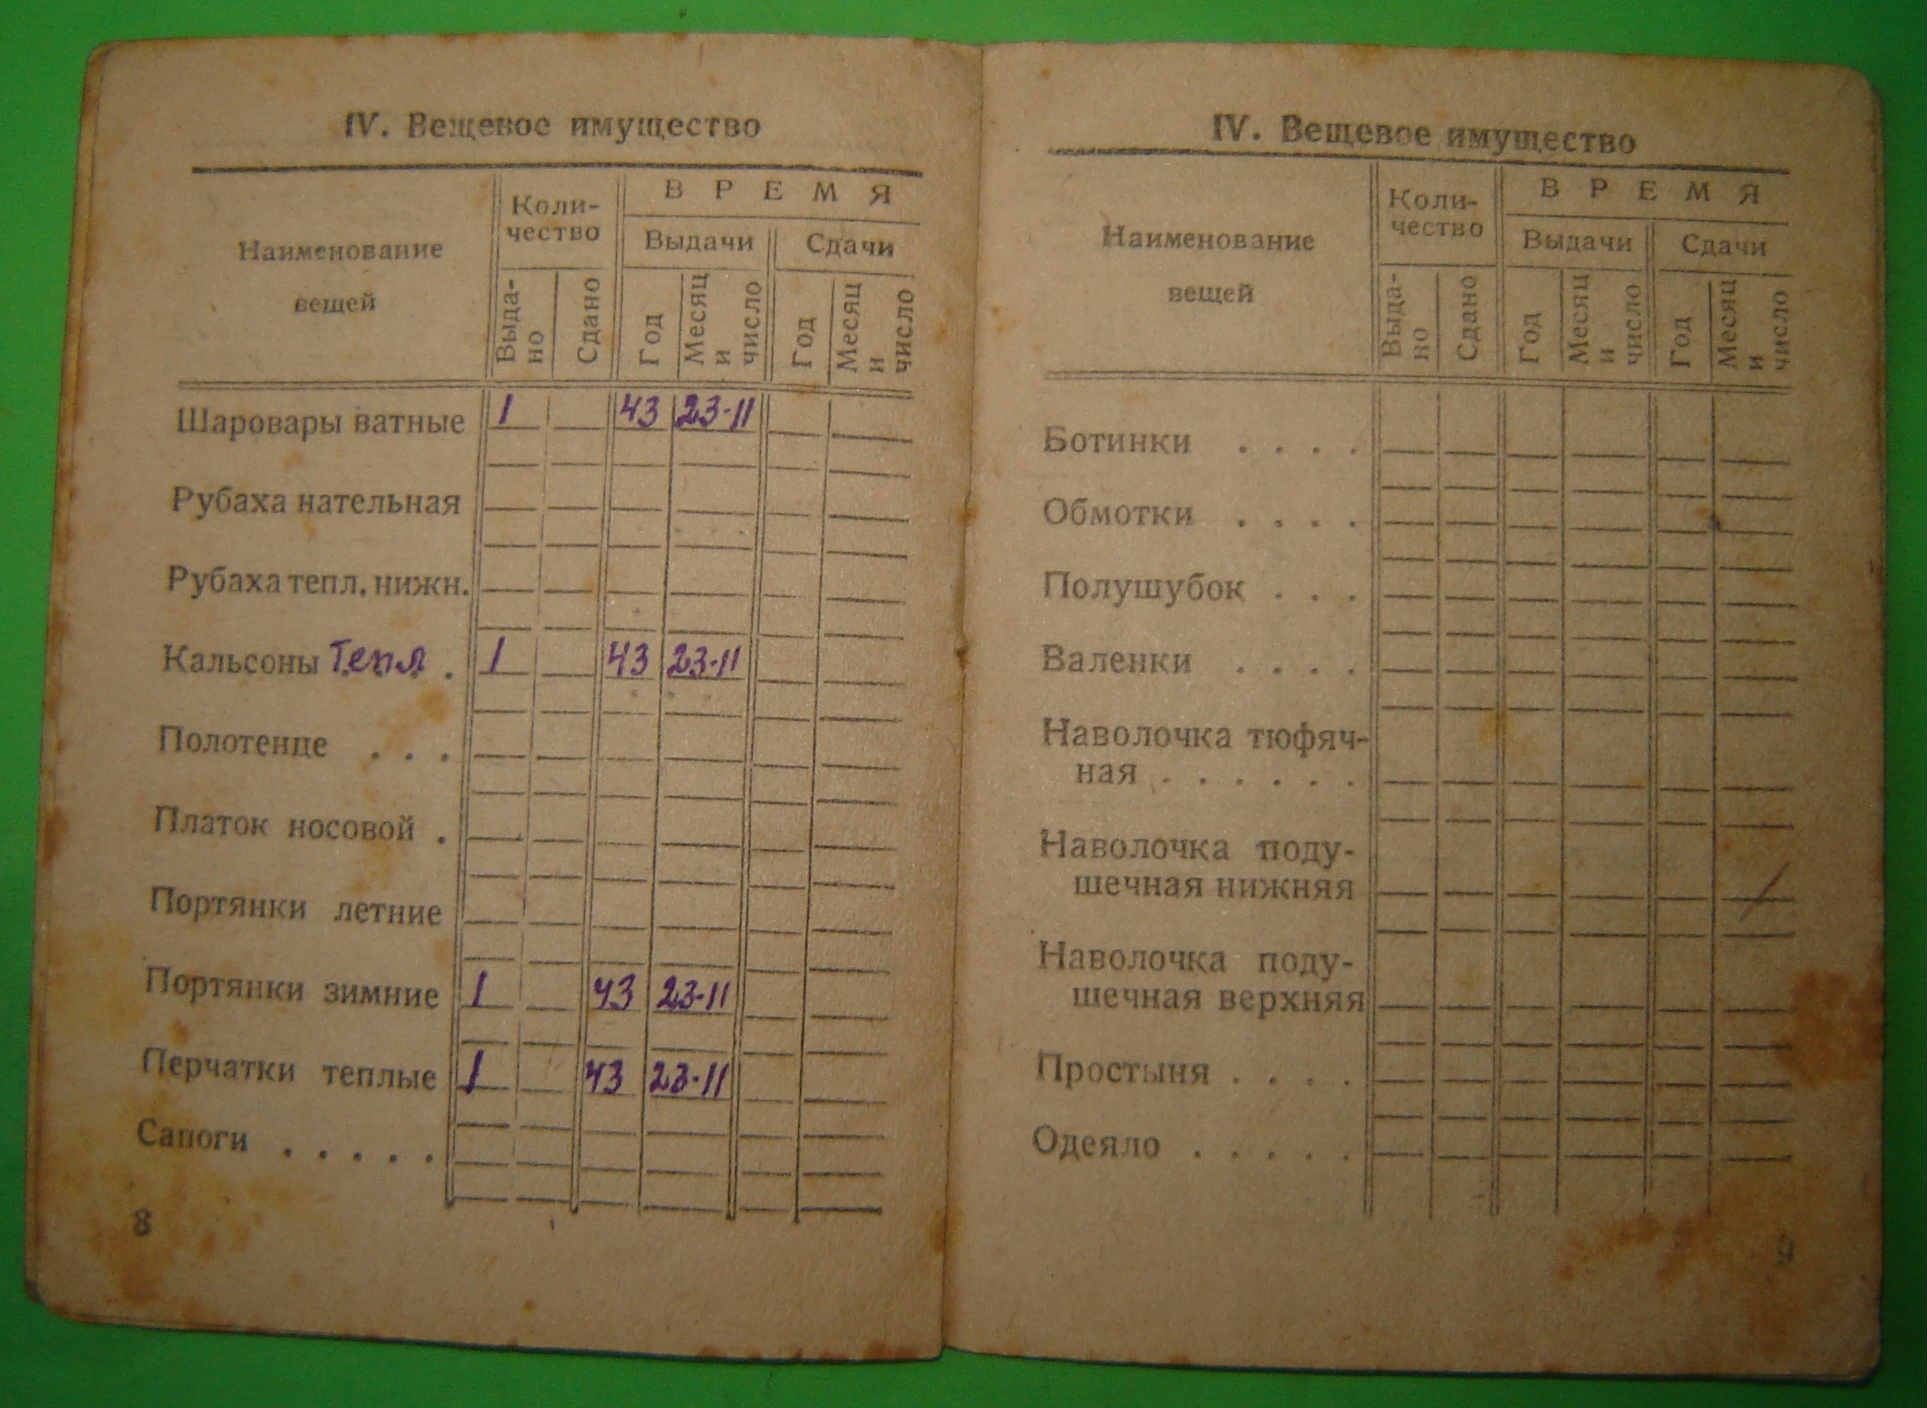 IV. Вещевое имущество
Наименование вещей
Количество
ВРЕМЯ
Выдачи
Сдачи
Выдано
Сдано
Год
Месяц и число
Год
Месяц и число
Шаровары ватные 1 43 23-11
Рубаха нательная
Рубаха тепл. нижн.
Кальсоны Тепл . 1 43 23-11
Полотенце . . .
Платок носовой .
Портянки летние
Портянки зимние 1 43 23-11
Перчатки теплые 1 43 23-11
Сапоги . . . . .
8
IV. Вещевое имущество
Наименование вещей
Количество
ВРЕМЯ
Выдачи
Сдачи
Выдано
Сдано
Год
Месяц и число
Год
Месяц и число
Ботинки . . . .
Обмотки . . . .
Полушубок . . .
Валенки . . . .
Наволочка тюфяч-
ная . . . . . .
Наволочка поду-
шечная нижняя
Наволочка поду-
шечная верхняя
Простыня . . . .
Одеяло . . . . .
9